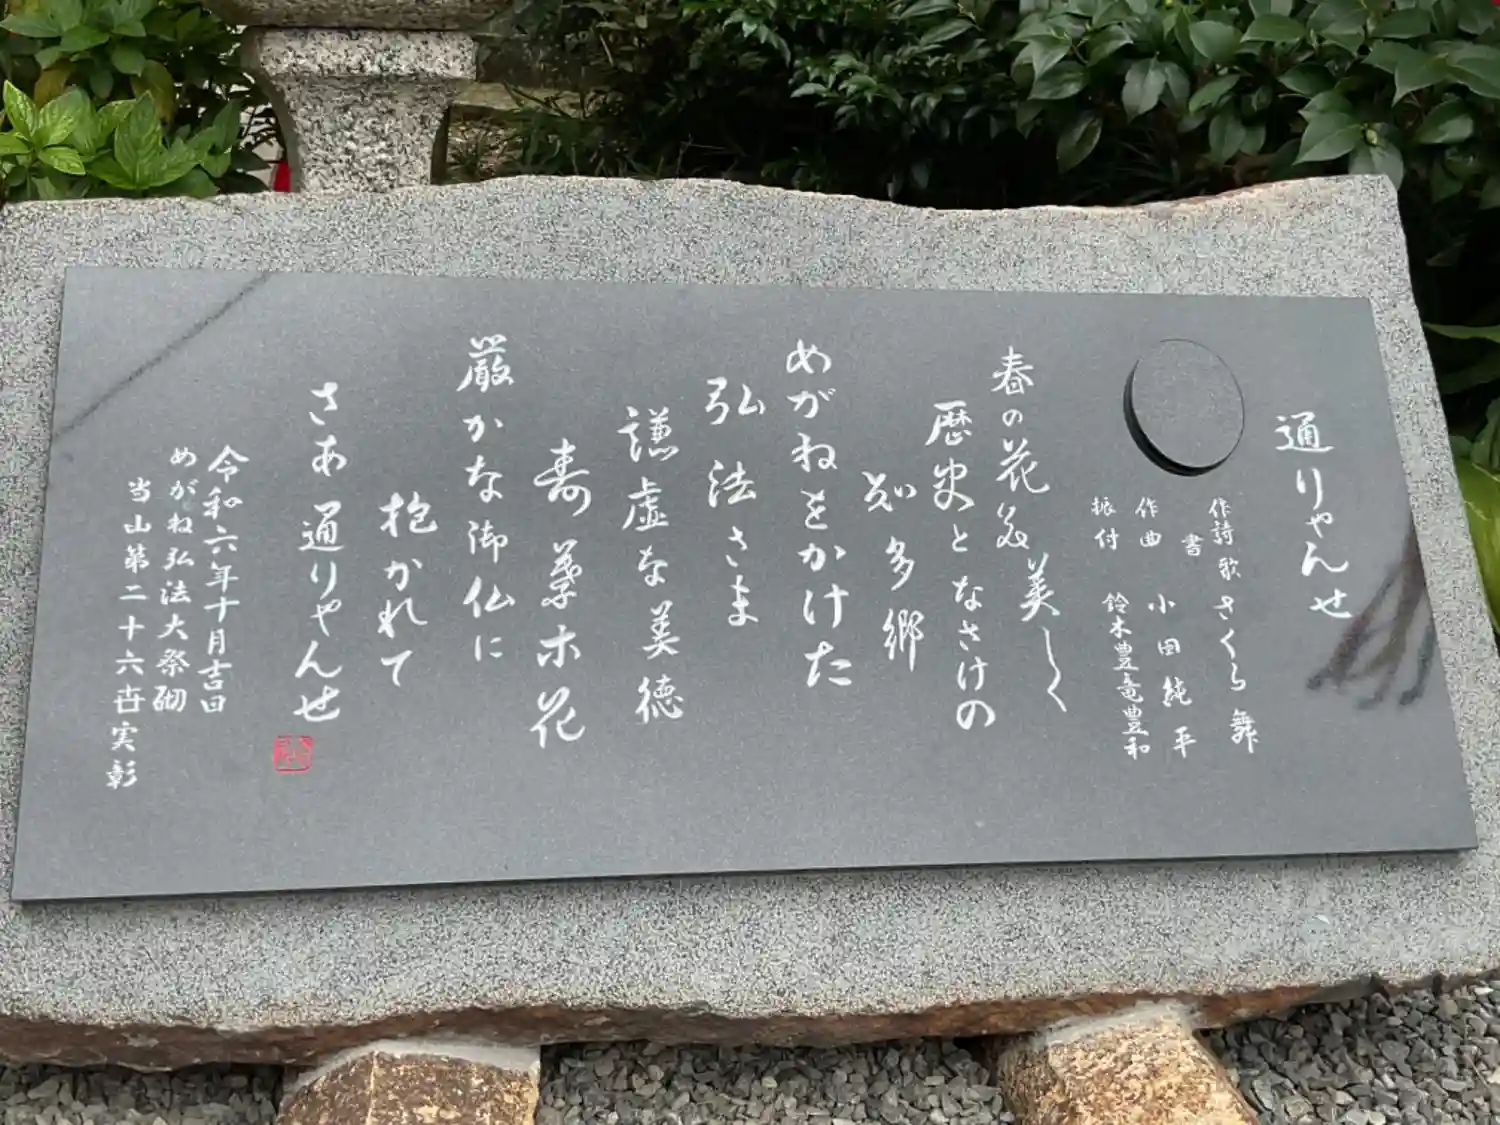 通りゃんせ
作詩 歌 さくら 舞
書
作曲 小田純平
振付 鈴木豊竜豊和
春の花々
美しく
歴史となさけの
知多郷
めがねをかけた
弘法さま
謙虚な美徳
寿葉木花
厳かな御仏に
抱かれて
さあ通りゃんせ
令和六年十月吉日
めがね弘法大祭砌
当山第二十六世実彰